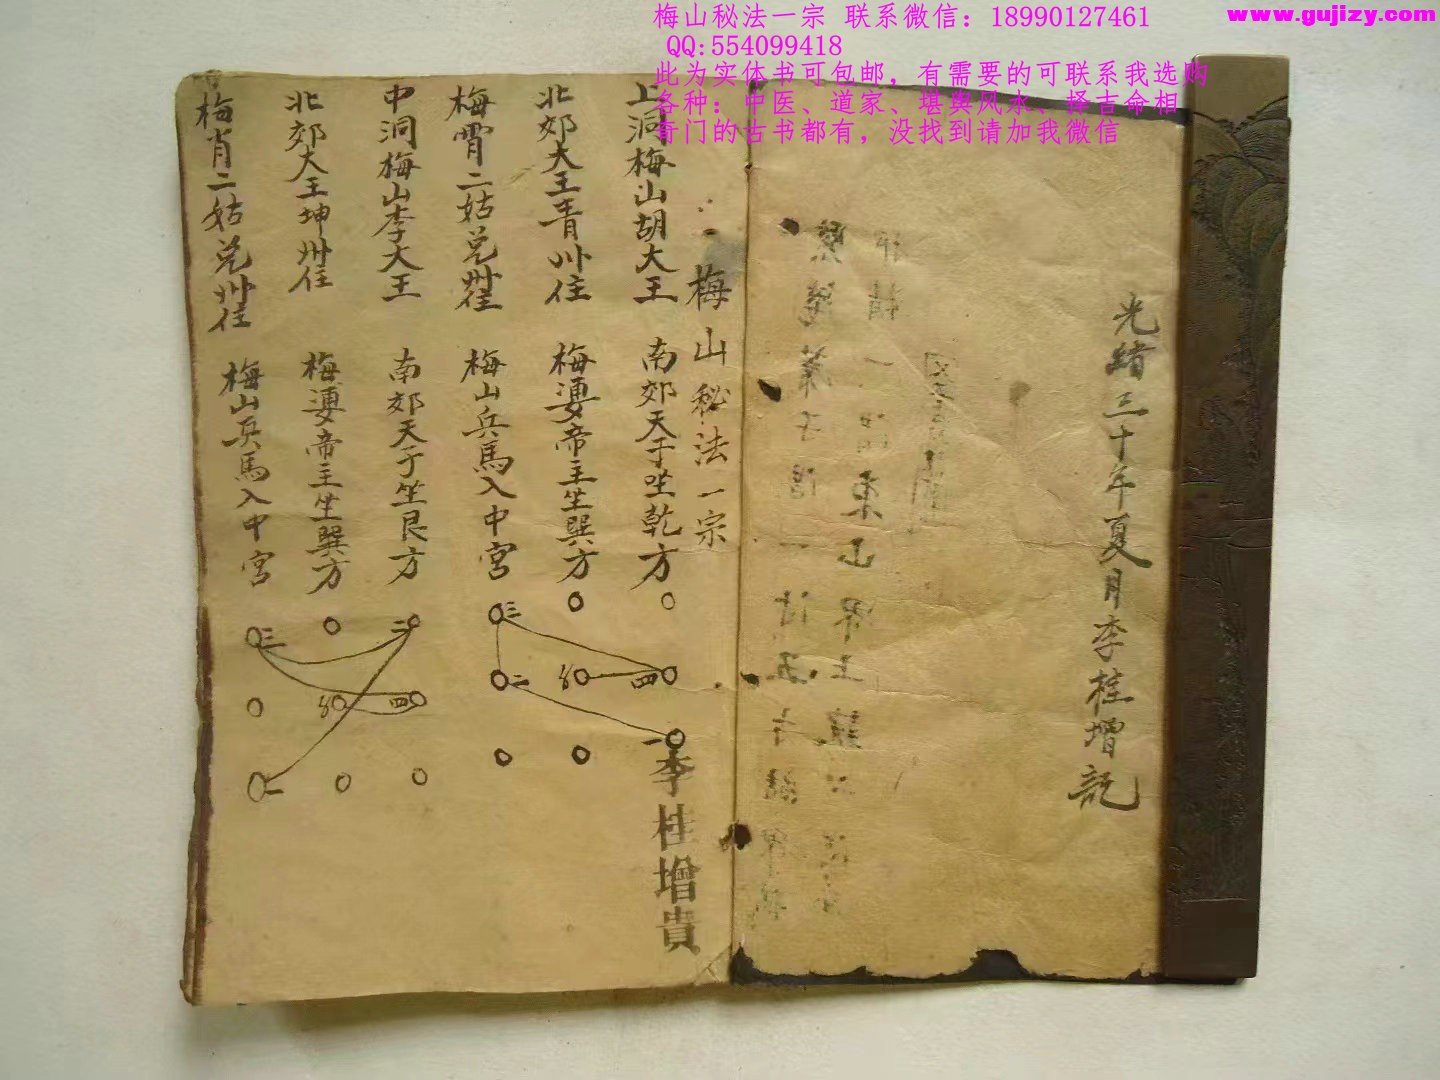 梅山秘法一宗 联系微信：18990127461
QQ:554099418
此为实体书可包邮，有需要的可联系我选购
各种：中医、道家、堪舆风水、择吉命相
奇门的古书都有，没找到请加我微信
www.gujizy.com
光緒三十年夏月李桂增記
梅山秘法一宗
李桂增貴
上洞梅山胡大王 南郊天子坐乾方
北郊大王青州住 梅婆帝主坐巽方
梅霄二姑兑州住 梅山兵馬入中宮
中洞梅山李大王 南郊天子坐艮方
北郊大王坤州住 梅婆帝主坐巽方
梅肖二姑兑州住 梅山兵馬入中宮
三
二
四
一
三
二
四
一